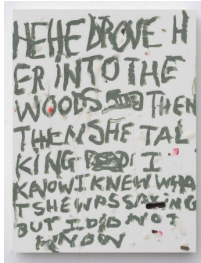 HEHE DROVE H
ER INTO THE
WOODS THEN
THEM SHE TAL
KING I
KNOW I KNEW WHA
T SHE WAS SAYING
BUT I DID NOT